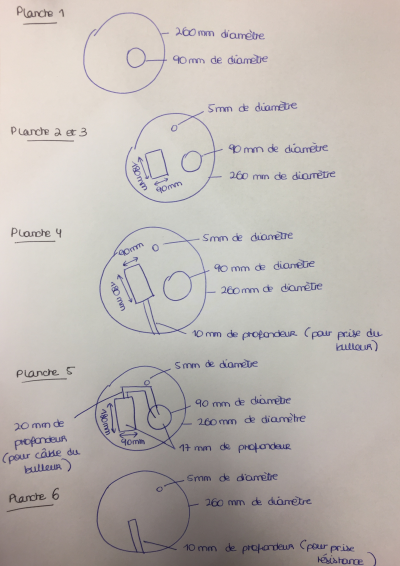 Planche 1
260mm diamètre
90mm de diamètre
5mm de diamètre
Planche 2 et 3
90mm de diamètre
180mm
90mm
260mm de diamètre
Planche 4
90mm
5mm de diamètre
90mm de diamètre
180mm
260mm de diamètre
10mm de profondeur (pour prise du
bulleur)
Planche 5
5mm de diamètre
90mm de diamètre
180mm
260mm de diamètre
20mm de
profondeur
(pour câble du
bulleur)
90mm
17mm de profondeur
Planche 6
5mm de diamètre
260mm de diamètre
10mm de profondeur (pour prise
résistance)